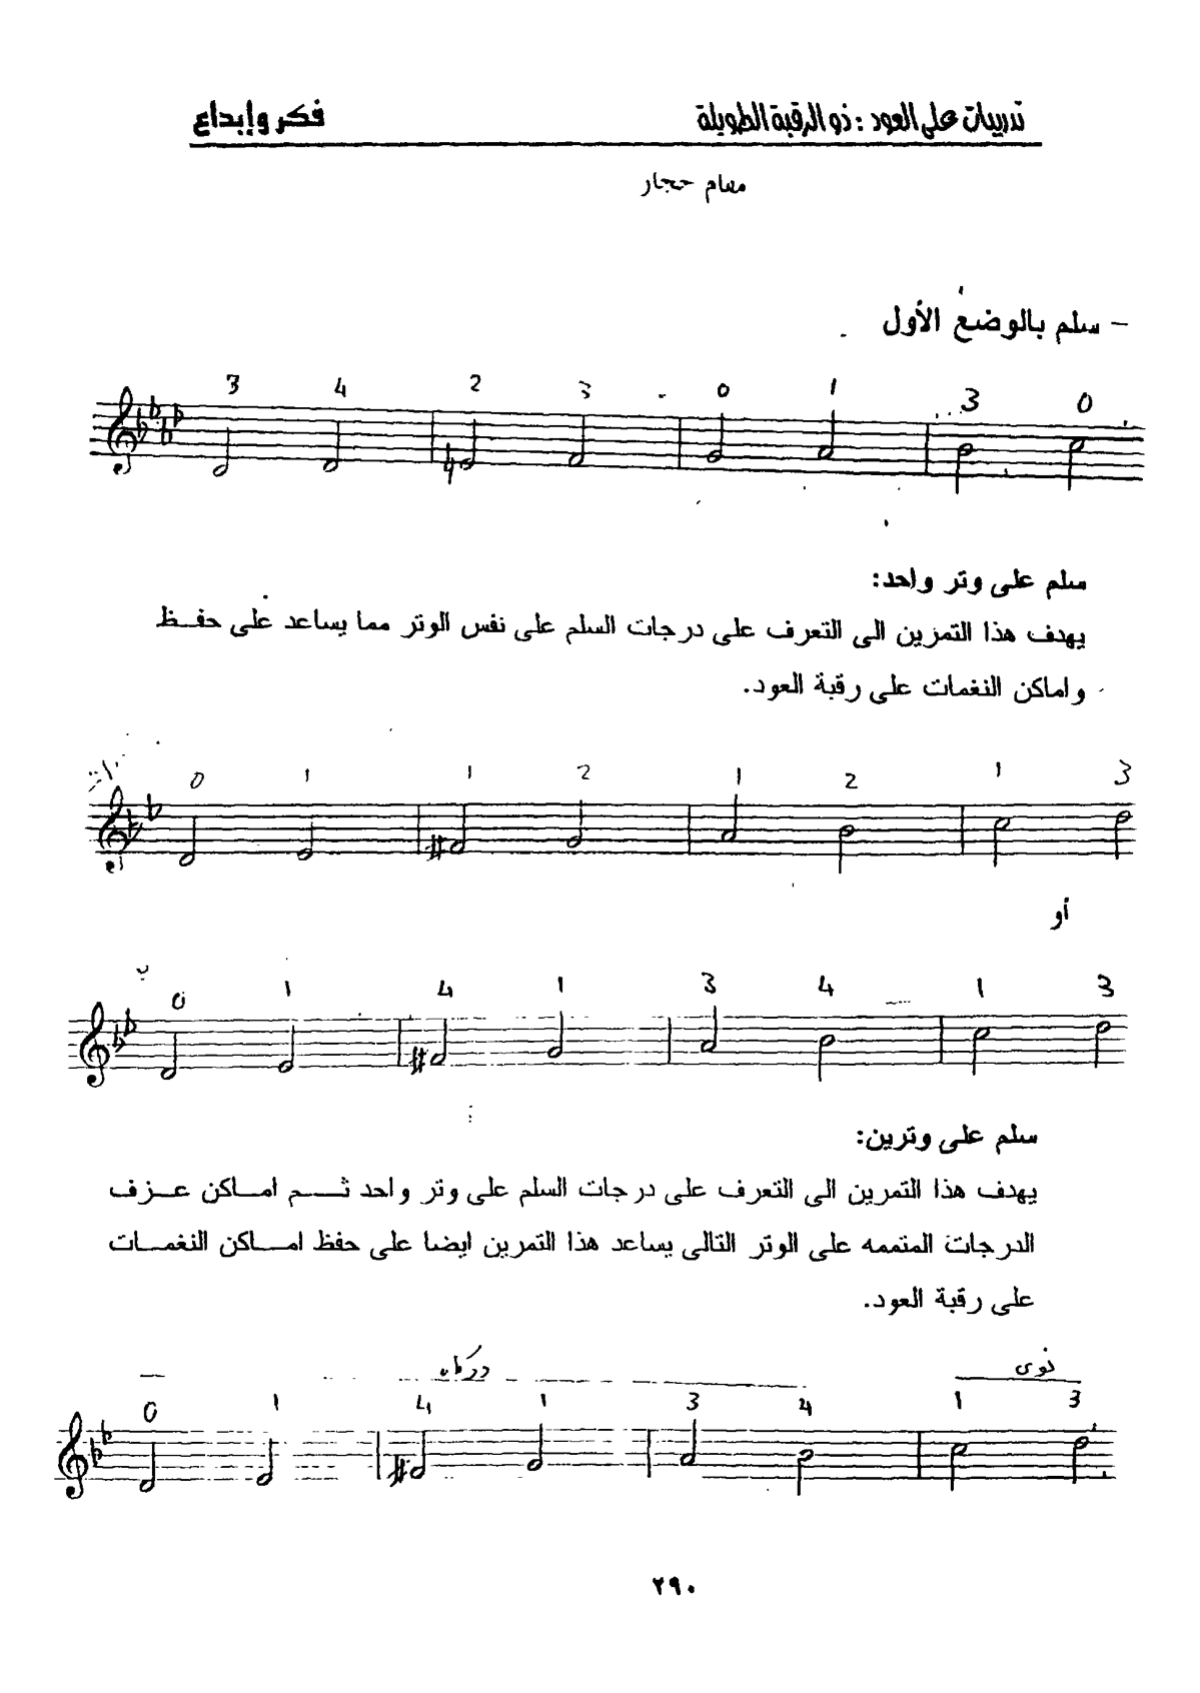 تدريبات على العود : ذو الرقبة الطويلة
فكر وإبداع
مقام حجاز
- سلم بالوضع الأول
3 4 2 3 0 1 3 0
سلم على وتر واحد:
يهدف هذا التمرين الى التعرف على درجات السلم على نفس الوتر مما يساعد على حفـظ
واماكن النغمات على رقبة العود.
0 1 1 2 1 2 1 3
أو
ب
0 1 4 1 3 4 1 3
سلم على وترين:
يهدف هذا التمرين الى التعرف على درجات السلم على وتر واحد ثـم امـاكن عـزف
الدرجات المتممه على الوتر التالى يساعد هذا التمرين ايضا على حفظ امـاكن النغمـات
على رقبة العود.
نوى
0 1 4 1 3 4 1 3
٢٩٠